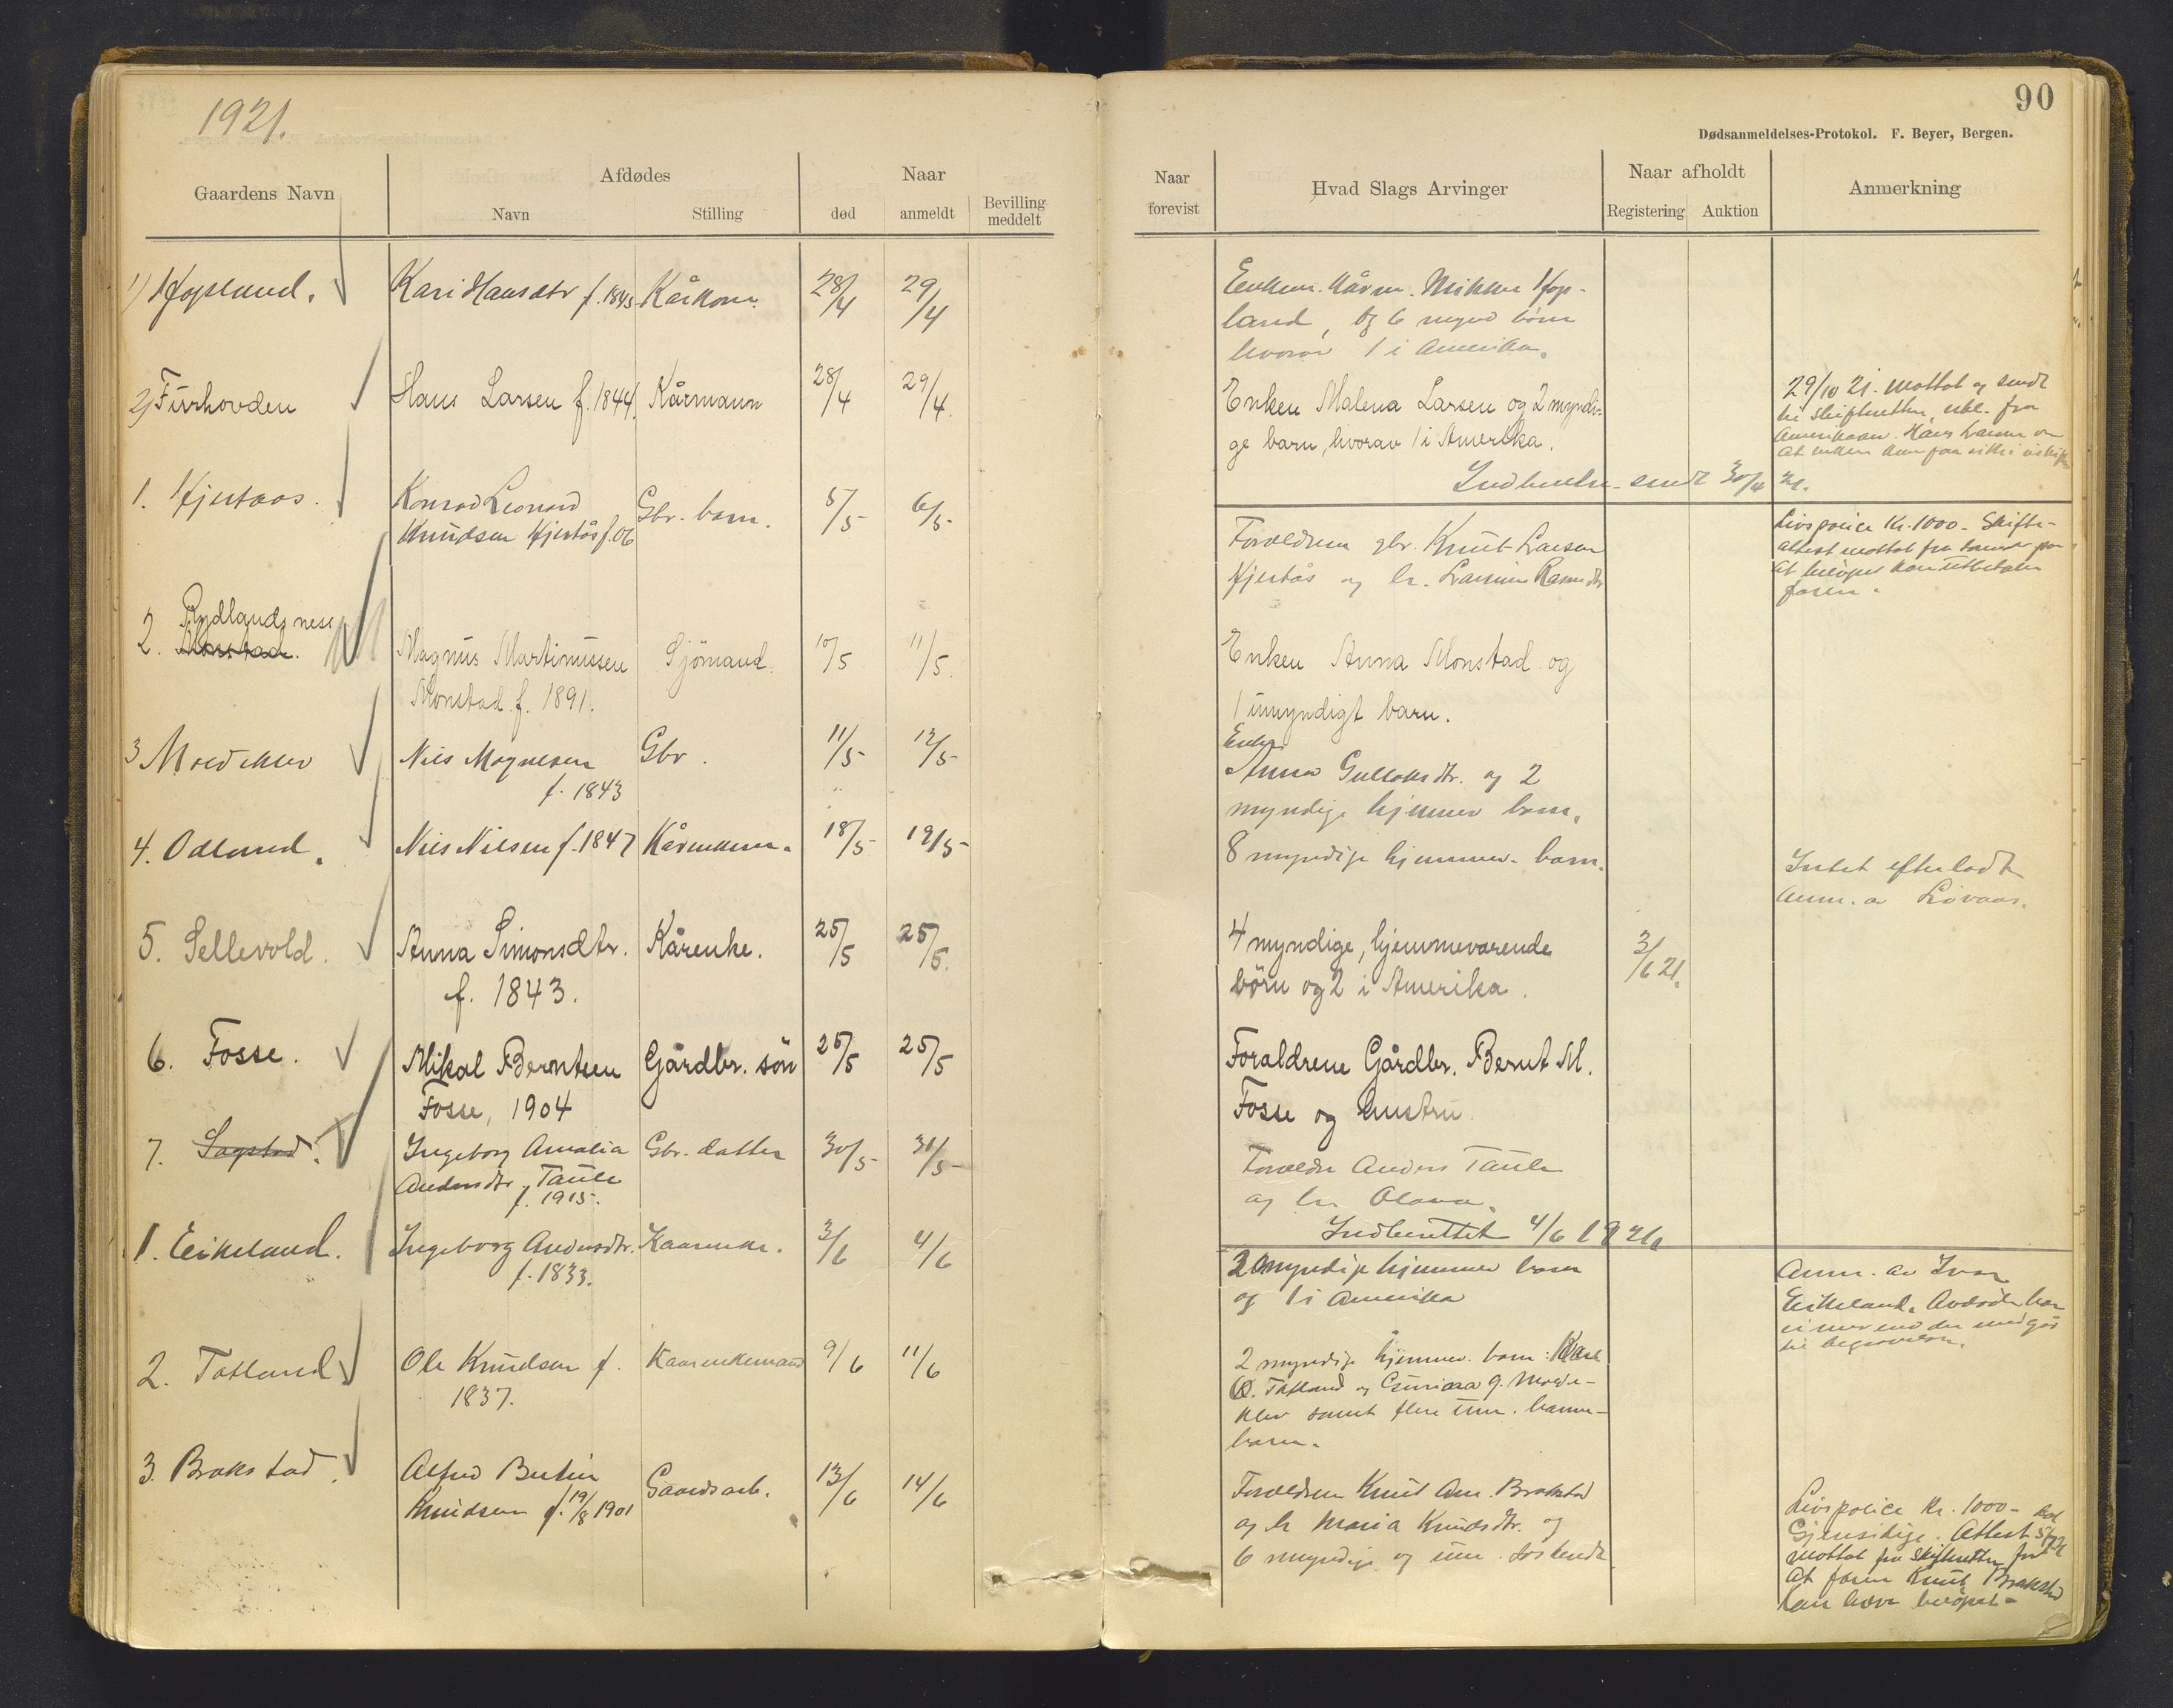 1921.
90
Dødsanmeldelses-Protokol. F. Beyer, Bergen.
Gaardens Navn
Afdødes
Navn
Stilling
Naar
død
anmeldt
Bevilling
meddelt
Naar
forevist
Hvad Slags Arvinger
Naar afholdt
Registering
Auktion
Anmerkning
1) Hopland.
Kari Hansdtr f. 1845
Kårkone
28/4
29/4
Enkem. Kårm. Mikkel Hop-
land, og 6 mynd børn
hvorav 1 i Amerika.
2) Furhovden
Hans Larsen f. 1844.
Kårmann
28/4
29/4.
Enken Malena Larsen og 2 myndi-
ge barn, hvorav 1 i Amerika.
29/10 21. mottat og sendt
til skifteretten erkl. fra
Amerikaner Hans Larsen om
at enken kan faa sitte i uskifte
Indberetn. sendt 30/4 21.
1. Hjertaas.
Konrad Leonard
Knudsen Hjertås f. 06
Gbr. barn.
5/5
6/5
Forældrene gbr. Knut Larsen
Hjertås og h. Larsine Rasmdtr
Livspolice Kr. 1000 - Skifte-
attest mottat fra
at beløpet kan utbetales
faren.
2. Rydlandsnes
Monstad.
Magnus Martinussen
Monstad f. 1891.
Sjömand.
10/5
11/5.
Enken Anna Monstad og
1 umyndigt barn.
3 Moldeklev
Nils Magnesen
f. 1843
Gbr.
11/5
12/5
Enken
Anna Gulleiksdtr. og 2
myndige hjemmev barn.
4. Odland.
Nils Nilsen f. 1847
Kårenkem.
18/5
19/5
8 myndige hjemmev. barn.
Intet efterladt
Anm. av Livaas.
5. Sellevold.
Anna Simonsdtr.
f. 1843.
Kårenke.
25/5
25/5.
4 myndige, hjemmevarende
börn og 2 i Amerika.
3/6 21.
6. Fosse.
Mikal Berntsen
Fosse, 1904
Gårdbr. sön
25/5
25/5
Forældrene Gårdbr. Bernt M.
Fosse og hustru.
7. Sagstad.
Ingeborg Amalia
Andersdtr. Taule
f. 1915.
Gbr. datter
30/5
31/5
Forældre Anders Taule
og h. Olava.
Indberettet 4/6 1921.
1. Eikeland.
Ingeborg Andersdtr.
f. 1833.
Kaarenke.
3/6
4/6
2 myndige hjemmev barn
og 1 i Amerika
Anm. av Ivar
Eikeland. Avdøde har
ei mer end der medgår
til begravelsen.
2. Totland
Ole Knudsen f.
1837.
Kaarenkemand
9/6
11/6
2 myndige hjemmev. barn: Karl
O. Totland og Guriana g. Molde-
klev samt flere um. barne-
barn.
3. Brakstad.
Alfred Bertin
Knudsen f. 19/8 1901
Gaardsarb.
13/6
14/6
Forældrene Knut Am. Brakstad
og h Maria Knudsdtr. og
6 myndige og um. søskende
Livspolice Kr. 1000 -
Gjensidige. Attest
mottat fra Skifteretten for
at faren Knut Brakstad
kan hæve beløpet -